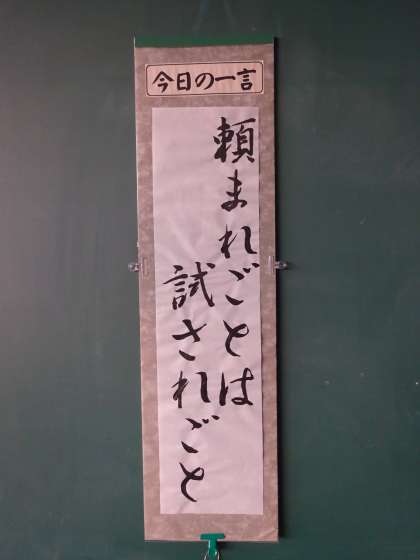 今日の一言
頼まれごとは
試されごと